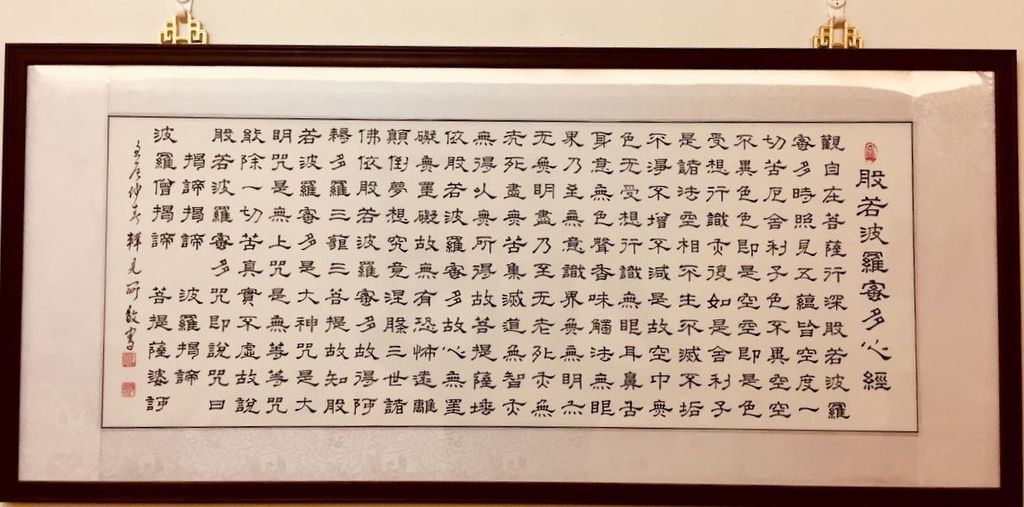 般若波羅蜜多心經
觀自在菩薩行深般若波羅
蜜多時照見五蘊皆空度一
切苦厄舍利子色不異空空
不異色色即是空空即是色
受想行識亦復如是舍利子
是諸法空相不生不滅不垢
不淨不增不減是故空中無
色无受想行識無眼耳鼻舌
身意無色聲香味觸法無眼
界乃至無意識界無無明亦
无無明盡乃至无老死亦無
老死盡無苦集滅道無智亦
無得以無所得故菩提薩埵
依般若波羅蜜多故心無罣
礙無罣礙故無有恐怖遠離
顛倒夢想究竟涅槃三世諸
佛依般若波羅蜜多故得阿
耨多羅三藐三菩提故知般
若波羅蜜多是大神咒是大
明咒是無上咒是無等等咒
能除一切苦真實不虛故說
般若波羅蜜多咒即說咒曰
揭諦揭諦 波羅揭諦
波羅僧揭諦 菩提薩婆訶